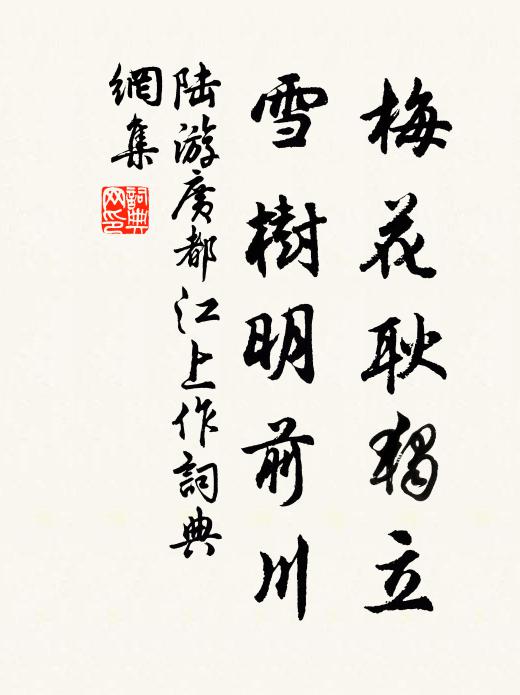 梅花耿獨立
雪樹明前川
陸游廣都江上作詞典
網集
詞典
网印